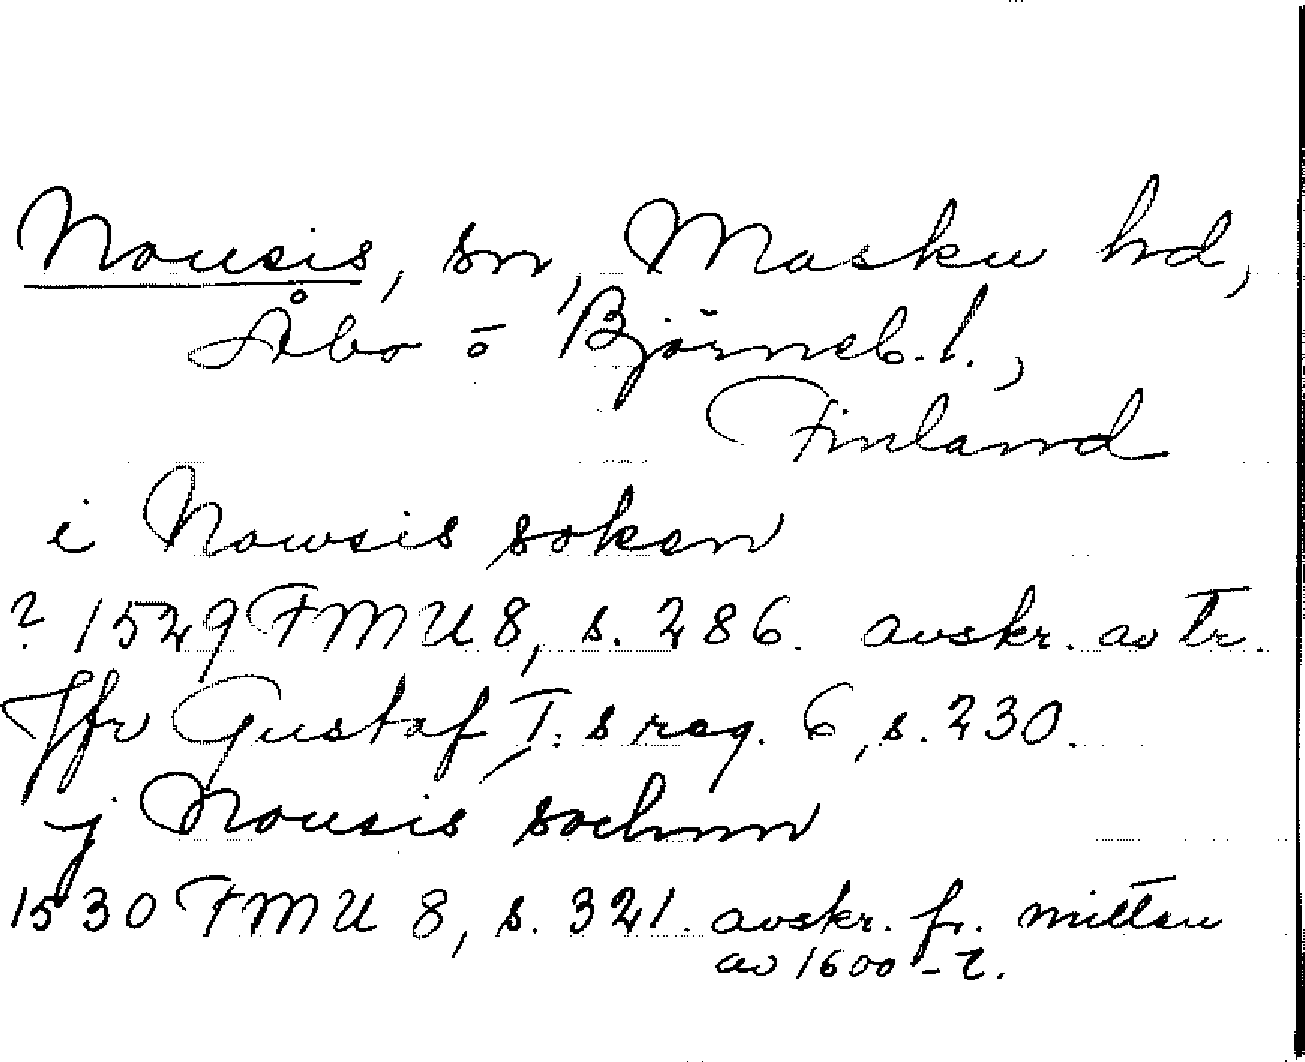 Nousis, sn, Masku hd,
Åbo o Björneb. l.,
Finland
i Nowsis soken
? 1529 FMU 8, s. 286. avskr. av tr.
Jfr Gustaf I:s reg. 6, s. 230.
j Nousis sochnn
1530 FMU 8, s. 321. avskr. fr. mitten
av 1600-t.